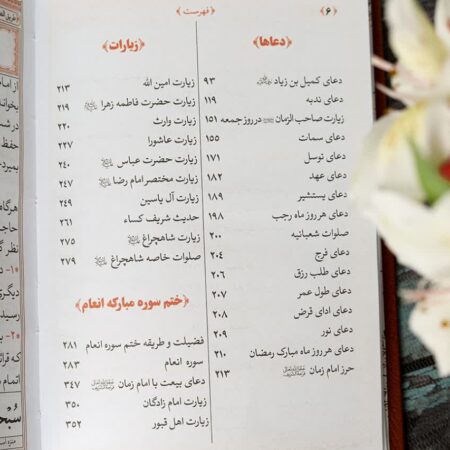 ﴿۶﴾
﴿ فهرست ﴾
﴿ دعاها ﴾
دعای کمیل بن زیاد ۹۳
دعای ندبه ۱۱۹
زیارت صاحب الزمان در روز جمعه ۱۵۱
دعای سمات ۱۵۵
دعای توسل ۱۷۱
دعای عهد ۱۸۲
دعای یستشیر ۱۸۹
دعای هر روز ماه رجب ۱۹۸
صلوات شعبانیه ۲۰۰
دعای فرج ۲۰۴
دعای طلب رزق ۲۰۶
دعای طول عمر ۲۰۷
دعای ادای قرض ۲۰۸
دعای نور ۲۰۹
دعای هر روز ماه مبارک رمضان ۲۱۰
حرز امام زمان ۲۱۳
﴿ زیارات ﴾
زیارت امین الله ۲۱۳
زیارت حضرت فاطمه زهرا ۲۱۹
زیارت وارث ۲۲۰
زیارت عاشورا ۲۲۷
زیارت حضرت عباس ۲۴۰
زیارت مختصر امام رضا ۲۴۷
زیارت آل یاسین ۲۴۹
حدیث شریف کساء ۲۶۱
زیارت شاهچراغ ۲۷۵
صلوات خاصه شاهچراغ ۲۷۹
﴿ ختم سوره مبارکه انعام ﴾
فضیلت و طریقه ختم سوره انعام ۲۸۱
سوره انعام ۲۸۳
دعای بیعت با امام زمان ۳۴۷
زیارت امام زادگان ۳۵۰
زیارت اهل قبور ۳۵۲
از امام
بخواند
در شب
حفظ
بمیرد
هرگاه
حاجت
نظر
دیگری
رسید
که قرائ
اتمام